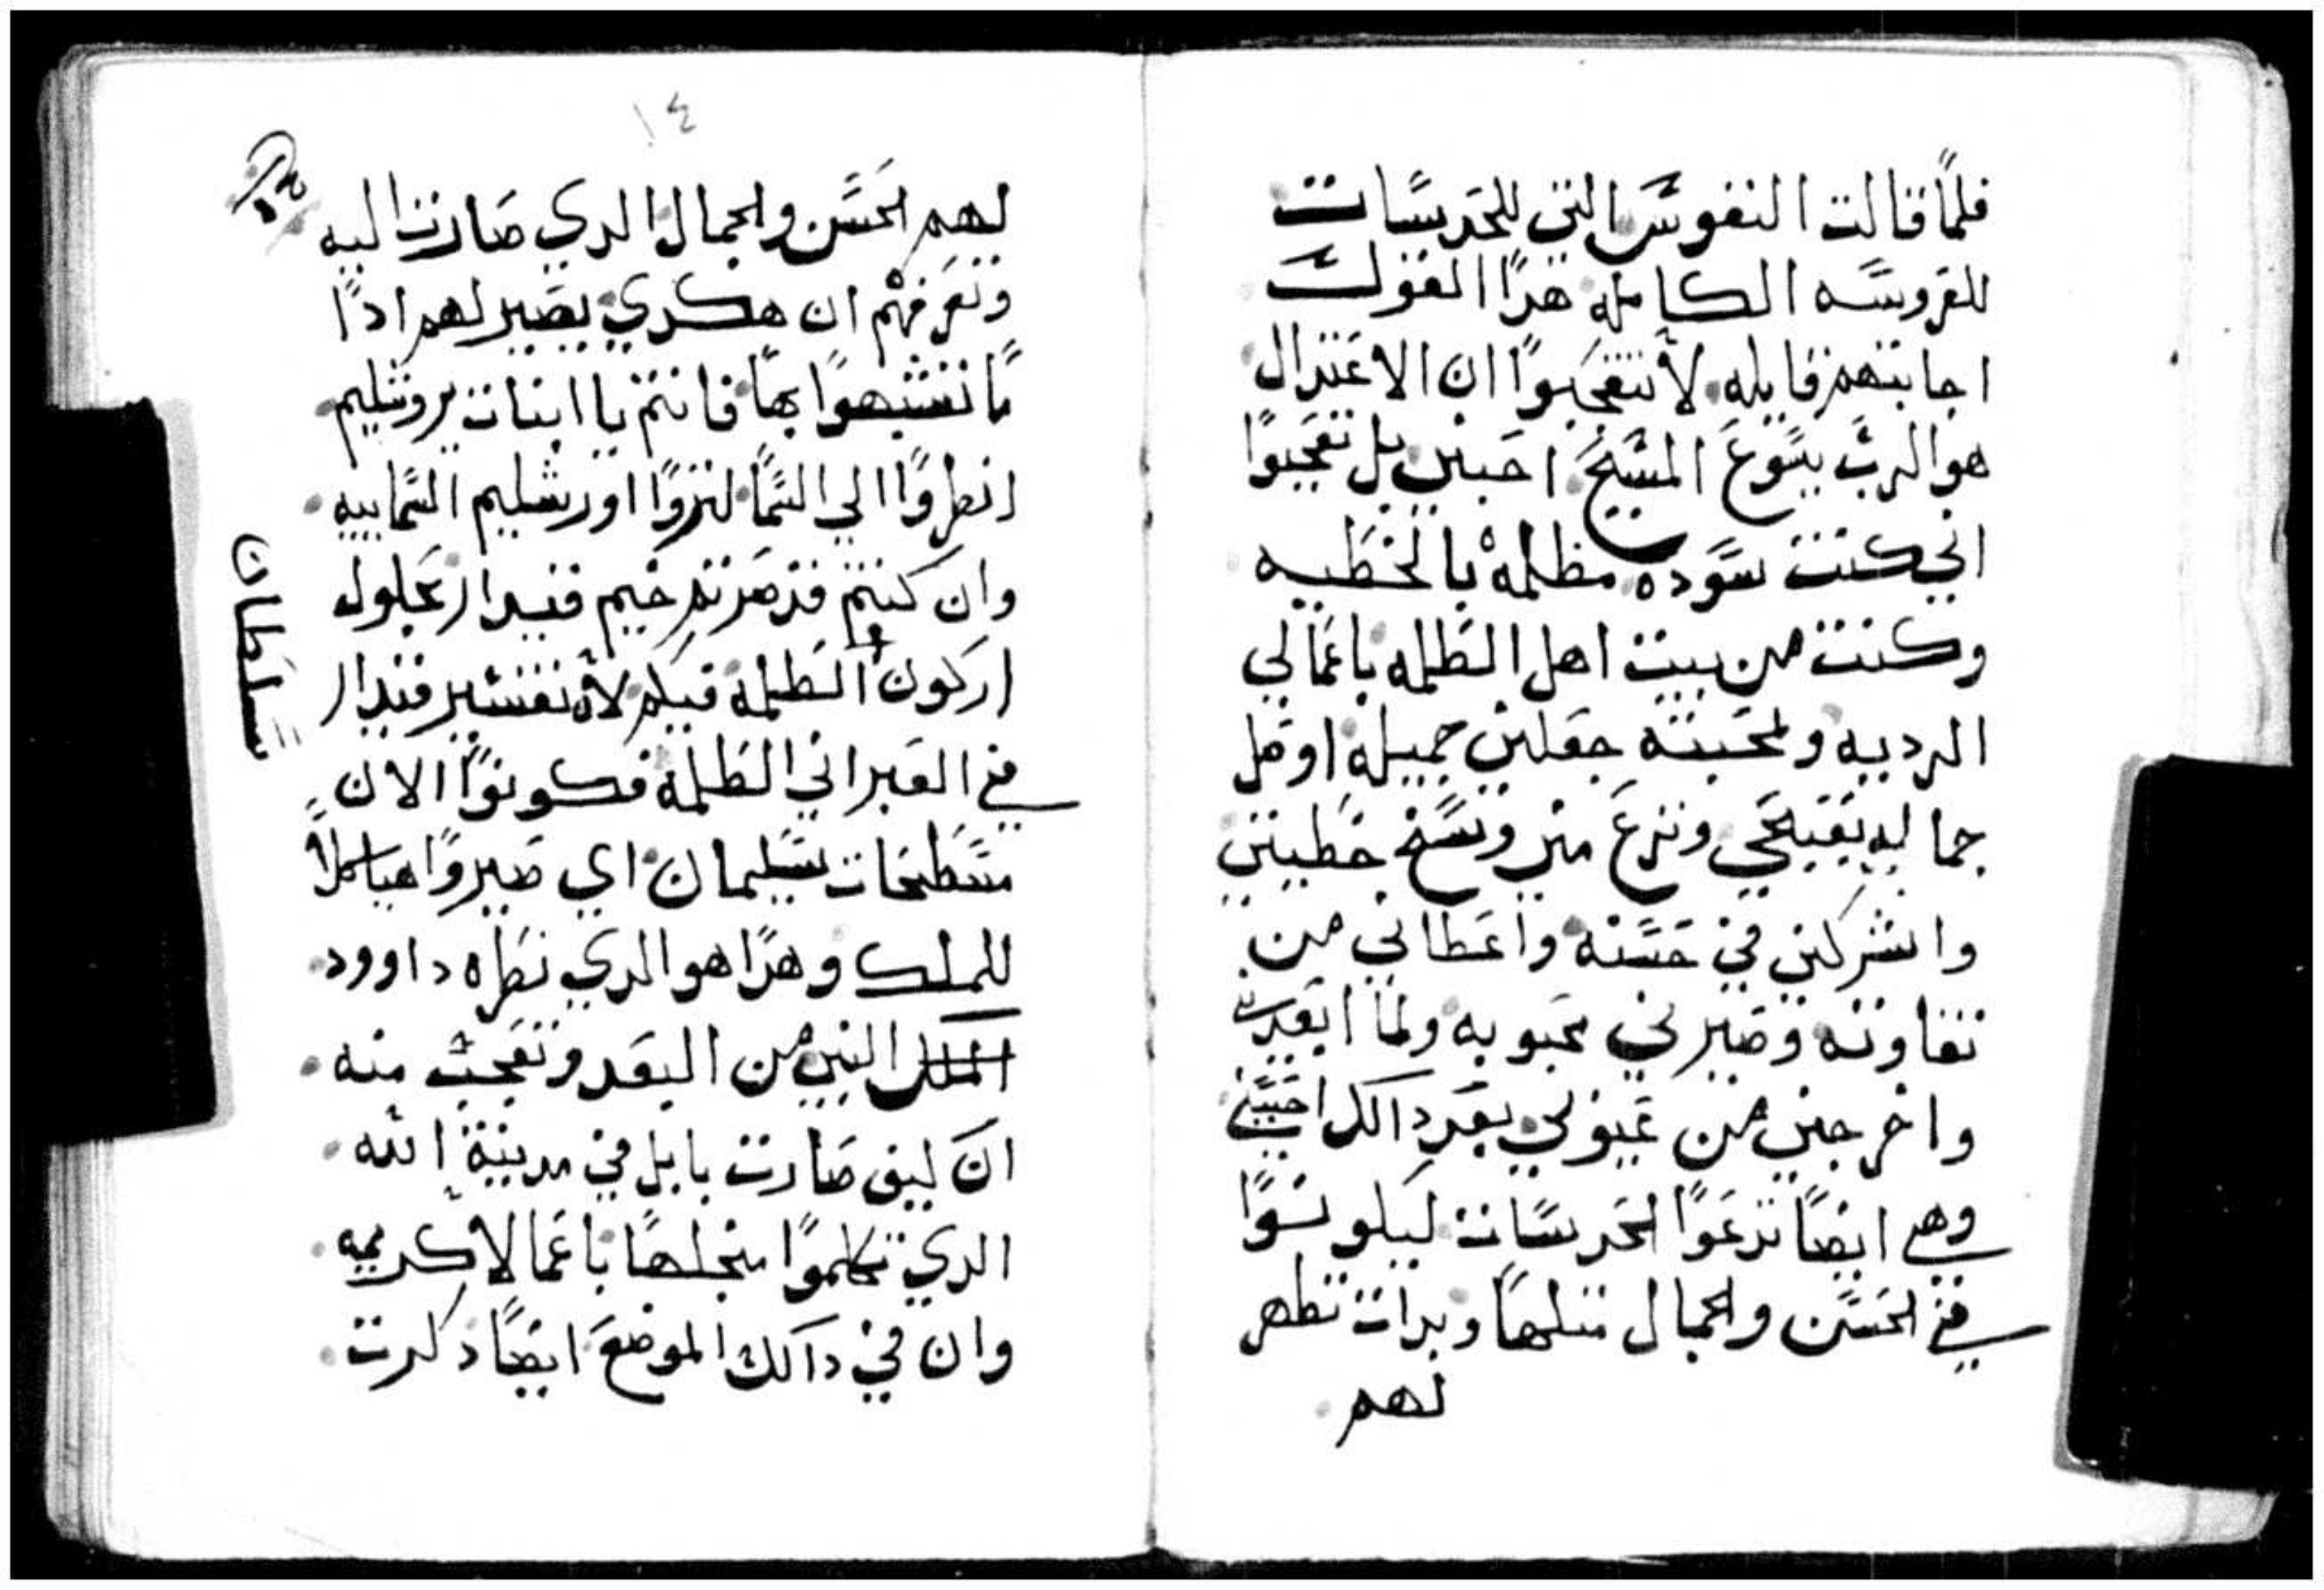 فلمّا قالت النفوس التي للحديسات
للعروسه الكامله هدا القول
اجابتهم قايله لا تتعجبوا ان الاعتدال
هو الرب يسوع المسيح احبني بل تعجبوا
اني كنت سوده مظلمه بالخطيه
وكنت من بيت اهل الظلمه باعمالي
الرديه ولمحبته جعلني جميله اوهل
جماليه بقبحي ونزع مني وسخ خطيتي
واشركني في حسنه واعطاني من
نقاوته وصيرني محبوبه ولما ابعد
واخرجني من عيوبي بعد دالك احبني
وهي ايضا تدعوا الحديسات ليلوسوا
في الحسن والجمال مثلها وبدات تظهر
لهم
١٤
لهم الحسن والجمال الدي صارت اليه
وتعرفهم ان هكدي يصير لهم ادا
ما تشبهوا بها فانتم يا ابنات يروشليم
انظروا الي السما لتروا اورشليم السماييه
وان كنتم قد صرتم خيم قيدار بحلول
اركون الظلمه فيكم لان تفسير قيدار
في العبراني الظلمه فكونوا الان
مسطحات سليمان اي صيروا هياكلا
للملك وهدا هو الدي نظره داوود
الملك النبي من البعد وتعجب منه
ان ليف صارت بابل في مدينة الله
الدي تكلموا منجلها باعمال الاكريمه
وان في دالك الموضع ايضا دكرت
سلطان